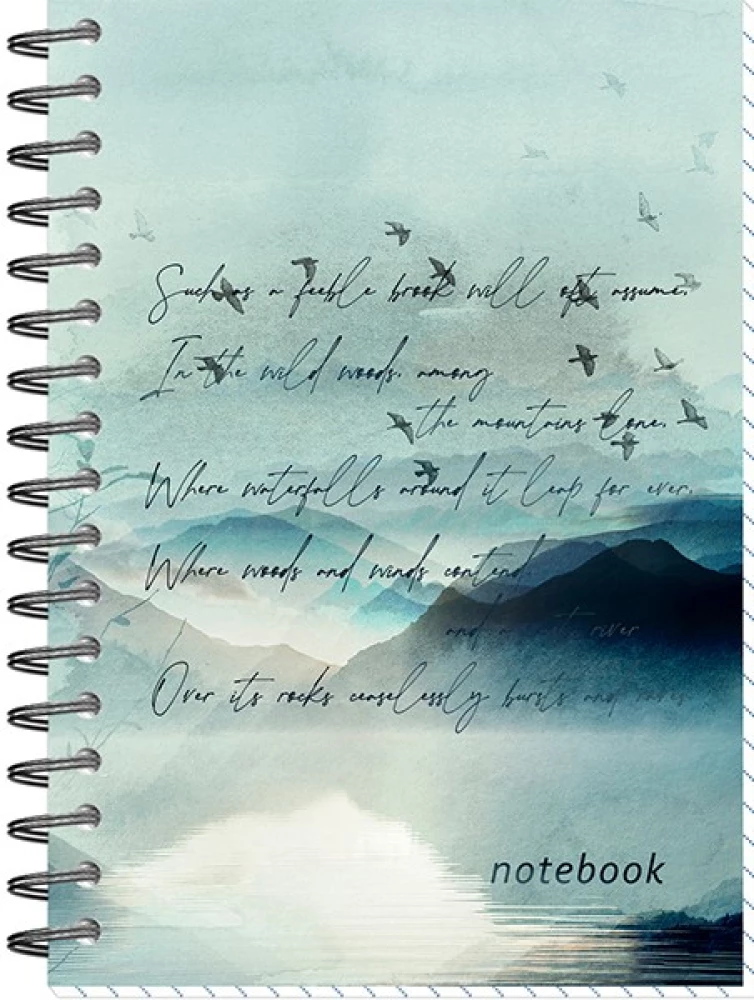 Such as a feeble brook will oft assume,
In the wild woods, among
the mountains lone,
Where waterfalls around it leap for ever,
Where woods and winds contend,
and a vast river
Over its rocks ceaselessly bursts and raves
notebook